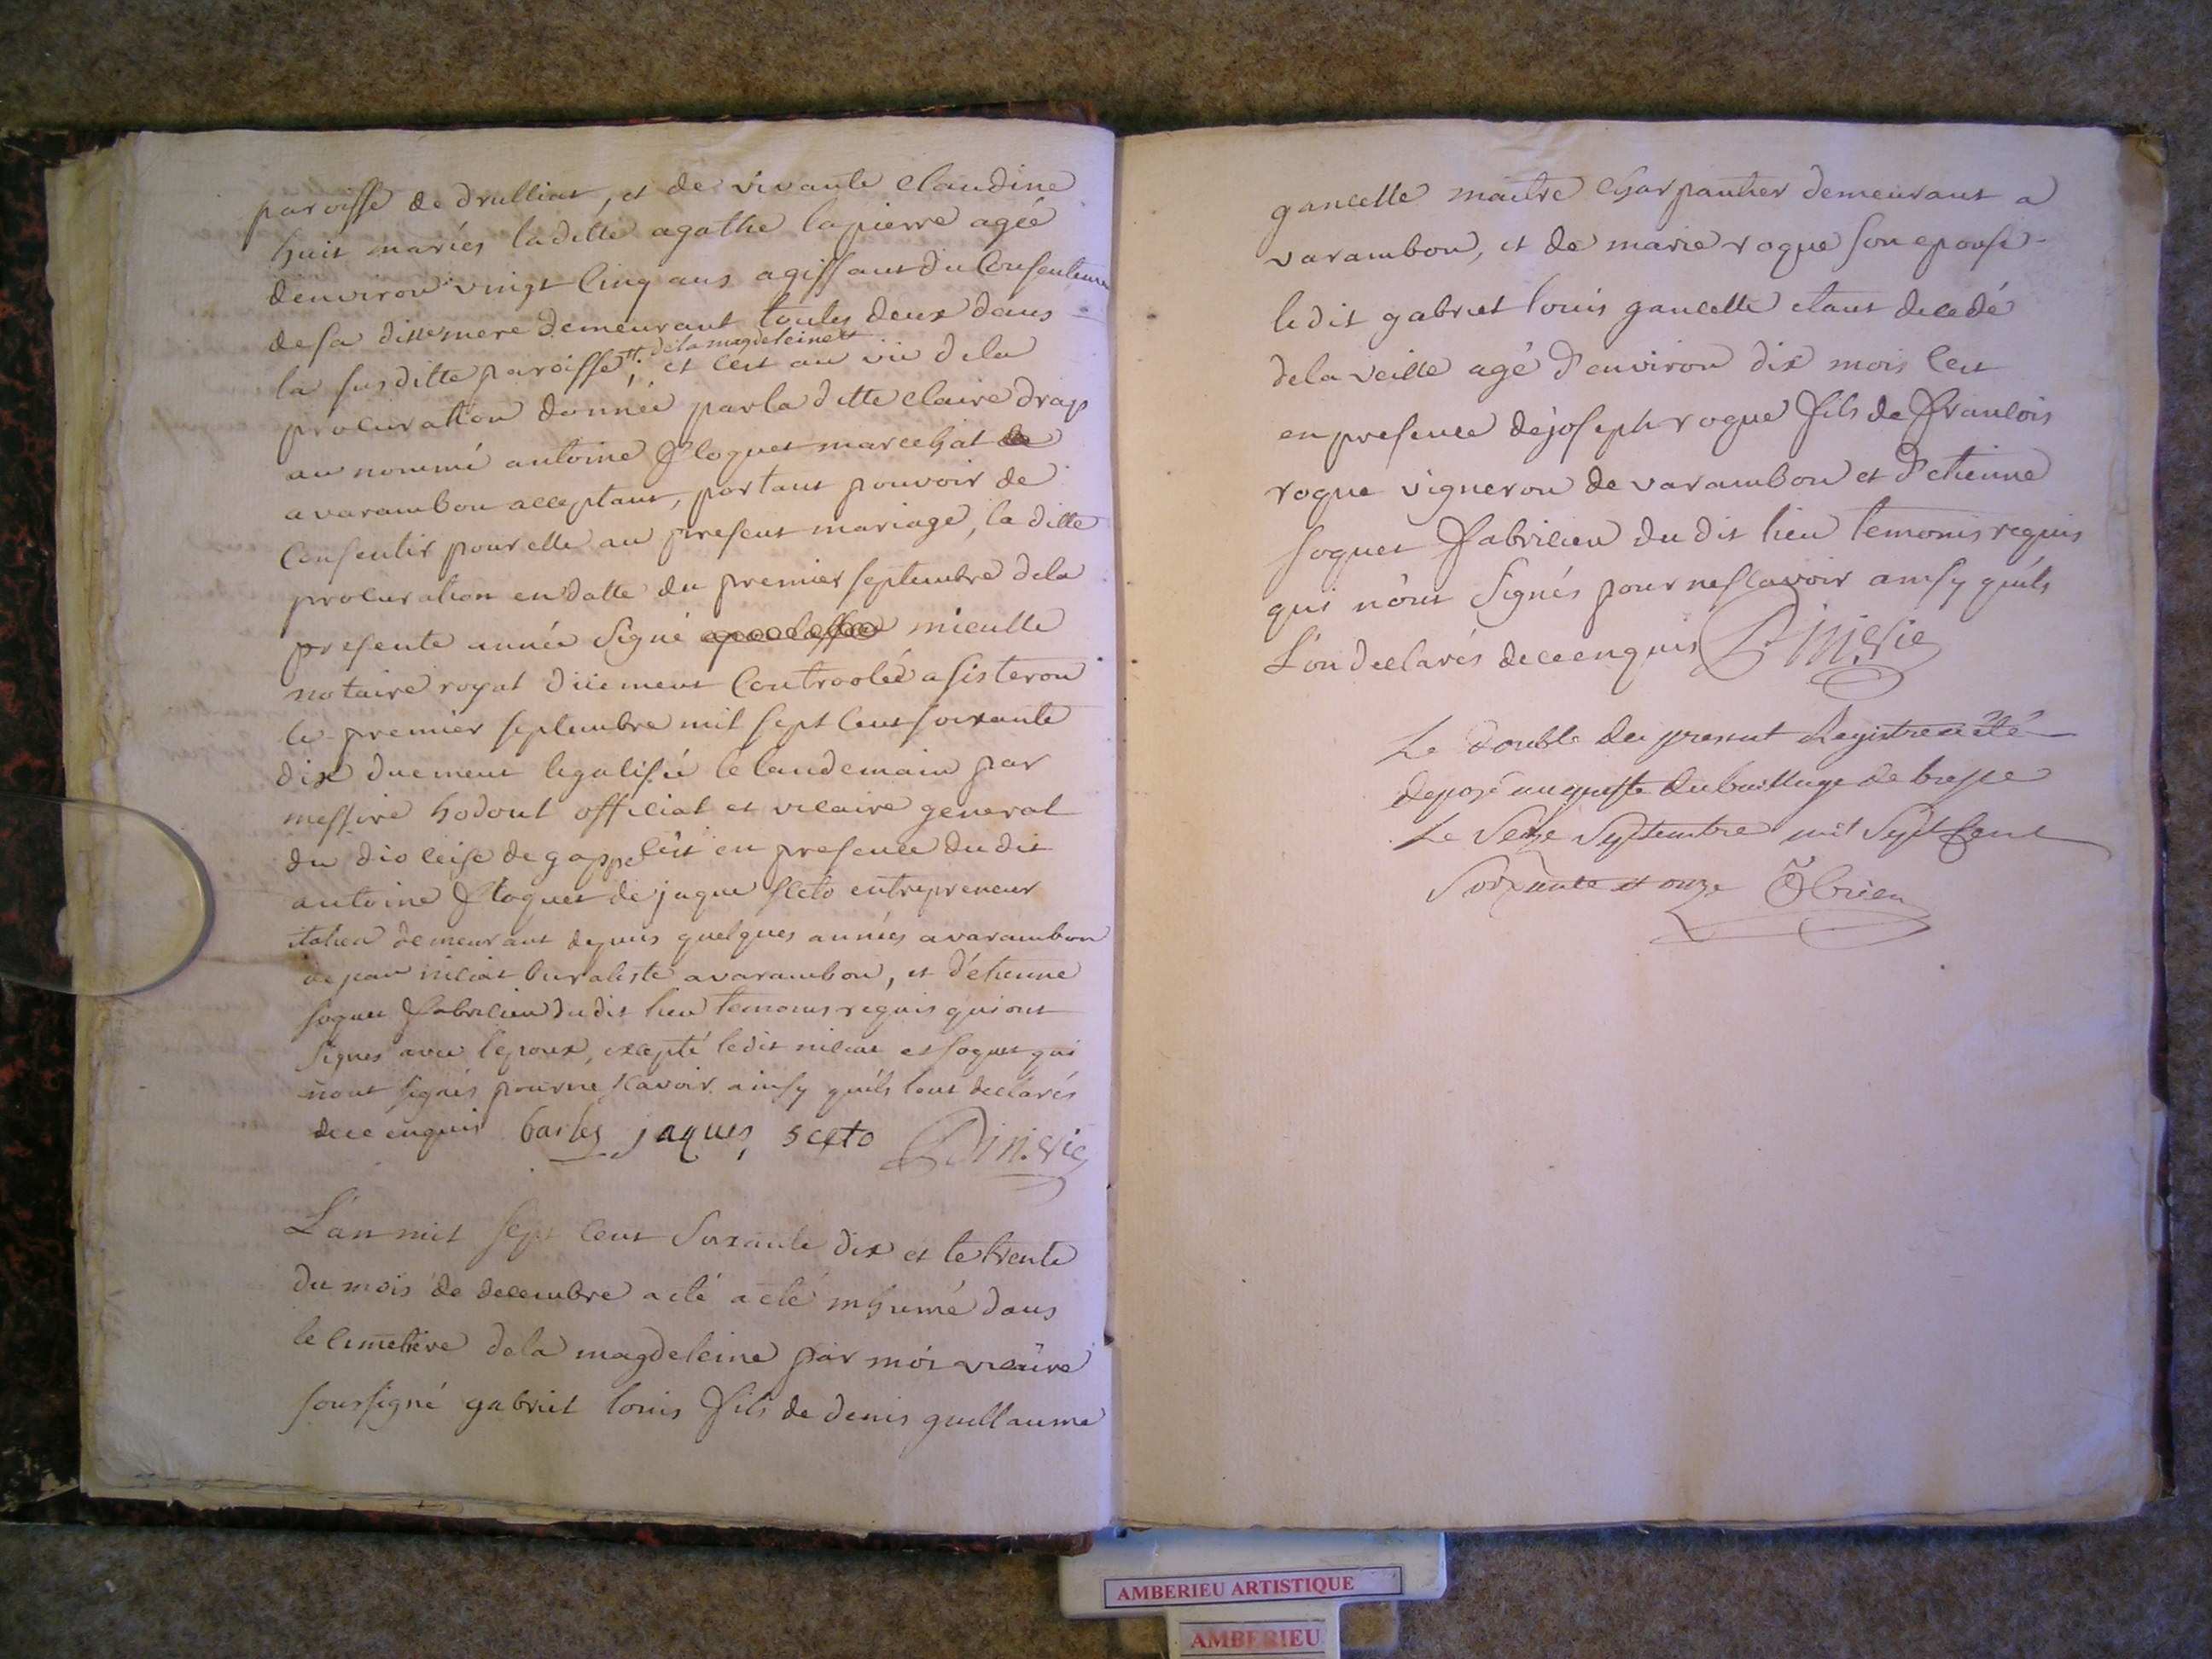 paroisse de drulliat, et de vivante claudine
huit mariés laditte agathe lapierre agée
denviron vingt cinq ans agissant du consentement
de sa ditte mere demeurant toutes deux dans
la susditte paroisse; # dela magdeleine # et cest au vû dela
procuration donnée par la ditte claire drap
au nommé antoine floquet marechal
a varambon acceptant, portant pouvoir de
consentir pour elle au present mariage, la ditte
procuration en datte du premier septembre dela
presente année signé mieulle
notaire royal düement controolée a sisteron
le premier septembre mil sept cent soixante
dix duement legalisée le landemain par
messire hodoul official et vicaire general
du dioceise de gapp cest en presence du dit
antoine floquet de jaque sceto entrepreneur
italien demeurant depuis quelques années a varambon
de jean buraliste a varambon, et d'etienne
soquet fabricien du dit lieu temoins requis qui ont
signés avec l'epoux, excepté ledit et soquet qui
n'ont signés pour ne scavoir ainsy qu'ils lont declarés
de ce enquis barles jaques sceto

L'an mil sept cent soixante dix et le trente
du mois de decembre a eté a eté inhumé dans
le cimetiere dela magdeleine par moi vicaire
soussigné gabriel louis fils de denis guillaume
gancelle maitre charpantier demeurant a
varambon, et de marie rogue son epouse
ledit gabriel louis gancelle etant decedé
dela veille agé d'environ dix mois cest
en presence de joseph rogue fils de francois
rogue vigneron de varambon et d'etienne
soquet fabricien du dit lieu temoins requis
qui n'ont signés pour ne scavoir ainsy qu'ils
l'on declarés de ce enquis

Le double du present Registre a été
deposé au greffe du bailliage de bresse
Le Seize Septembre mil Sept Cent
Soixante et onze Obrien

AMBERIEU ARTISTIQUE
AMBERIEU